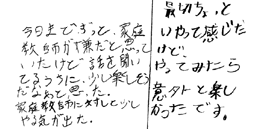 今日まできっと、家庭
教師が嫌だと思って
いたけど話を聞い
てるうちに、少し楽しそう
だなあと思った。
家庭教師に対して少し
やる気が出た。
最初ちょっと
いやって感じだ
けど
やってみたら
意外と楽し
かったです。